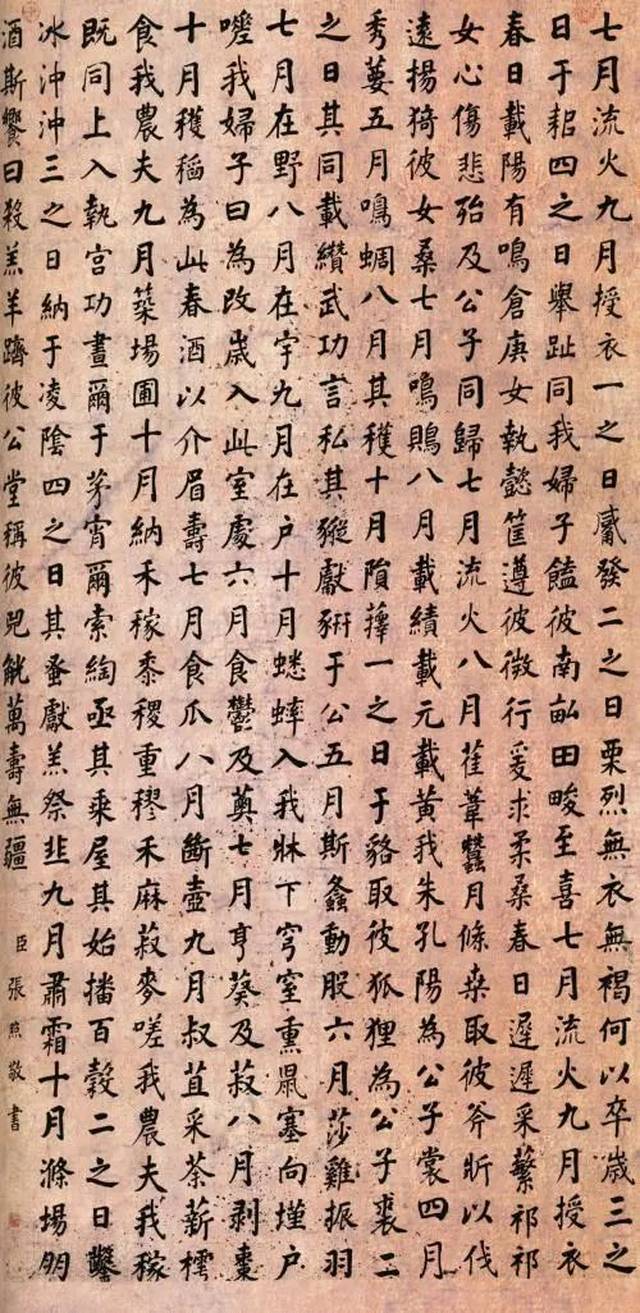 七月流火九月授衣一之日觱發二之日栗烈無衣無褐何以卒歲三之
日于耜四之日舉趾同我婦子饁彼南畝田畯至喜七月流火九月授衣
春日載陽有鳴倉庚女執懿筐遵彼微行爰求柔桑春日遲遲采蘩祁祁
女心傷悲殆及公子同歸七月流火八月萑葦蠶月條桑取彼斧斨以伐
遠揚猗彼女桑七月鳴鵙八月載績載元載黃我朱孔陽為公子裳四月
秀葽五月鳴蜩八月其穫十月隕蘀一之日于貉取彼狐狸為公子裘二
之日其同載纘武功言私其豵獻豜于公五月斯螽動股六月莎雞振羽
七月在野八月在宇九月在户十月蟋蟀入我牀下穹窒熏鼠塞向墐户
嗟我婦子曰為改歲入此室處六月食鬱及薁七月亨葵及菽八月剥棗
十月穫稻為此春酒以介眉壽七月食瓜八月斷壺九月叔苴采荼薪樗
食我農夫九月築場圃十月納禾稼黍稷重穋禾麻菽麥嗟我農夫我稼
既同上入執宫功晝爾于茅宵爾索綯亟其乘屋其始播百穀二之日鑿
冰沖沖三之日納于凌陰四之日其蚤獻羔祭韭九月肅霜十月滌場朋
酒斯饗曰殺羔羊躋彼公堂稱彼兕觥萬壽無疆 臣張照敬書